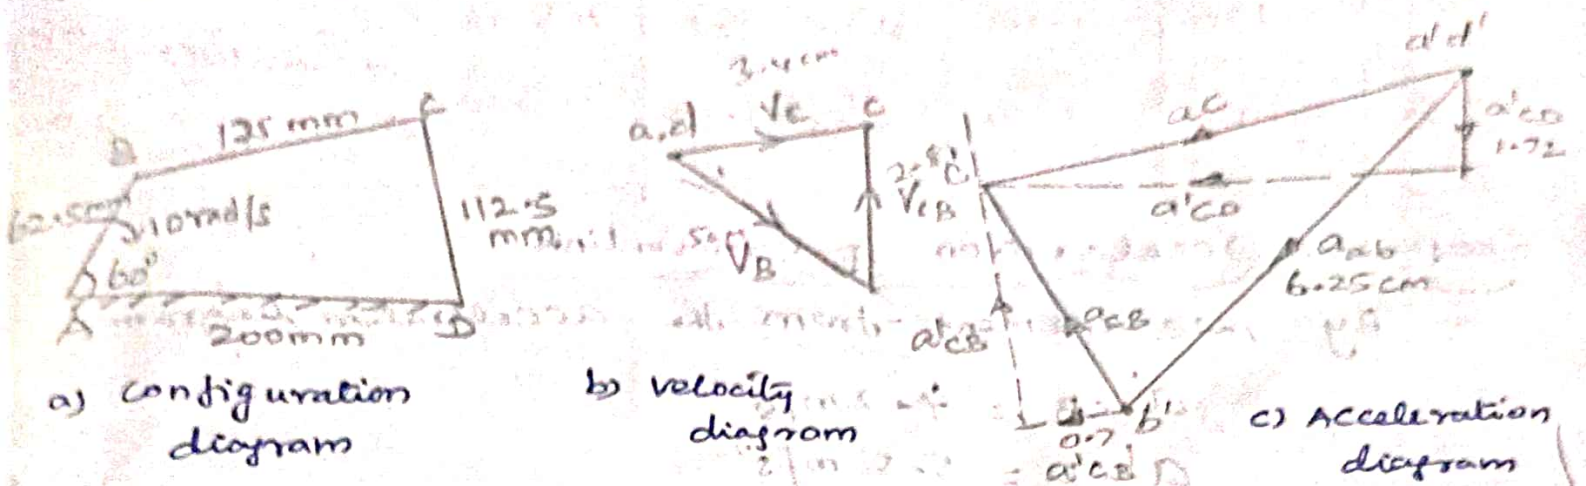 B
125 mm
C
62.5cm
10rad/s
60°
112.5
mm
A
200mm
D
a) configuration
diagram
3.4cm
a,d
Vc
c
VCB
VB
b) velocity
diagram
a'd'
ac
a'CD
1.72
c'
a'CD
aab
6.25cm
aCB
a'CB
b'
0.7
a'CB
c) Acceleration
diagram